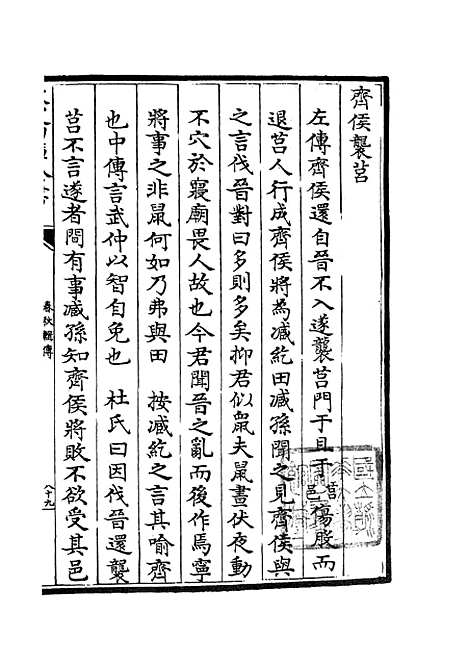 齊侯襲莒
左傳齊侯還自晉不入遂襲莒門于且于莒邑傷股而
退莒人行成齊侯將為臧紇田臧孫聞之見齊侯與
之言伐晉對曰多則多矣抑君似鼠夫鼠晝伏夜動
不穴於寢廟畏人故也今君聞晉之亂而後作焉寧
將事之非鼠何如乃弗與田　按臧紇之言其喻齊
也中傳言武仲以智自免也　杜氏曰因伐晉還襲
莒不言遂者間有事臧孫知齊侯將敗不欲受其邑
春秋輯傳
八十九